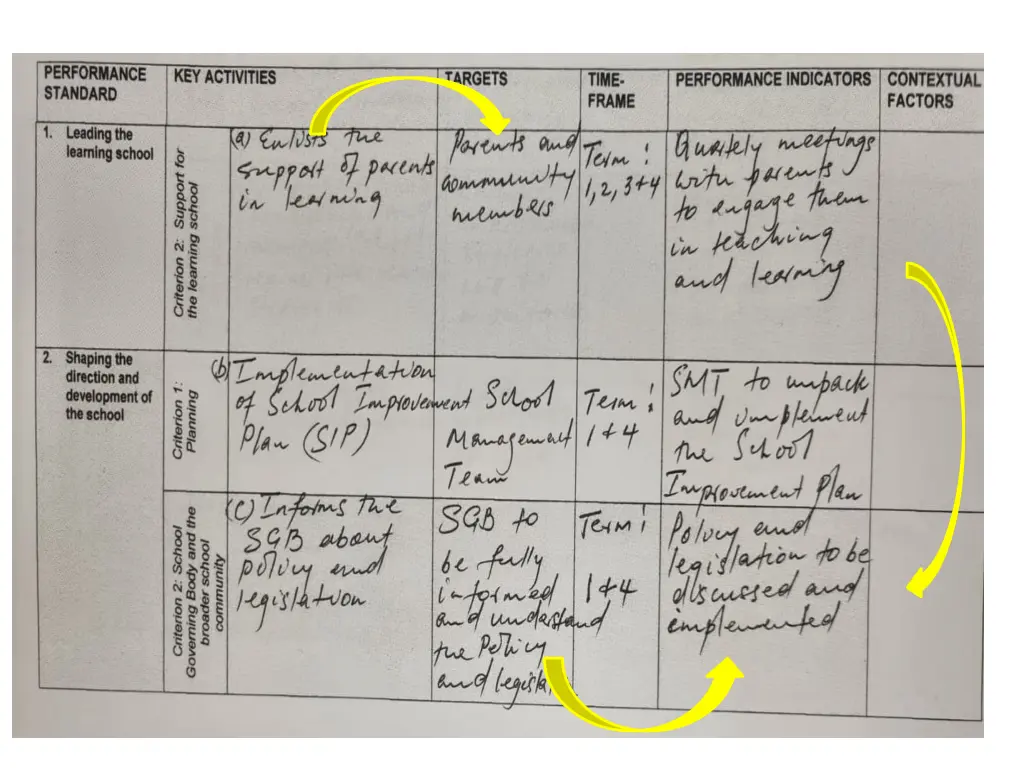 PERFORMANCE
STANDARD
KEY ACTIVITIES
TARGETS
TIME-
FRAME
PERFORMANCE INDICATORS
CONTEXTUAL
FACTORS
1. Leading the
learning school
Criterion 2: Support for
the learning school
(a) Enlists the
support of parents
in learning
Parents and
community
members
Term :
1, 2, 3 + 4
Quartely meetings
with parents
to engage them
in teaching
and learning
2. Shaping the
direction and
development of
the school
Criterion 1:
Planning
(b) Implementation
of School Improvement
Plan (SIP)
School
Management
Team
Term :
1 & 4
SMT to unpack
and implement
the School
Improvement Plan
Criterion 2: School
Governing Body and the
broader school
community
(c) Informs the
SGB about
policy and
legislation
SGB to
be fully
informed
and understand
the Policy
and
Term :
1 & 4
Policy and
legislation to be
discussed and
implemented